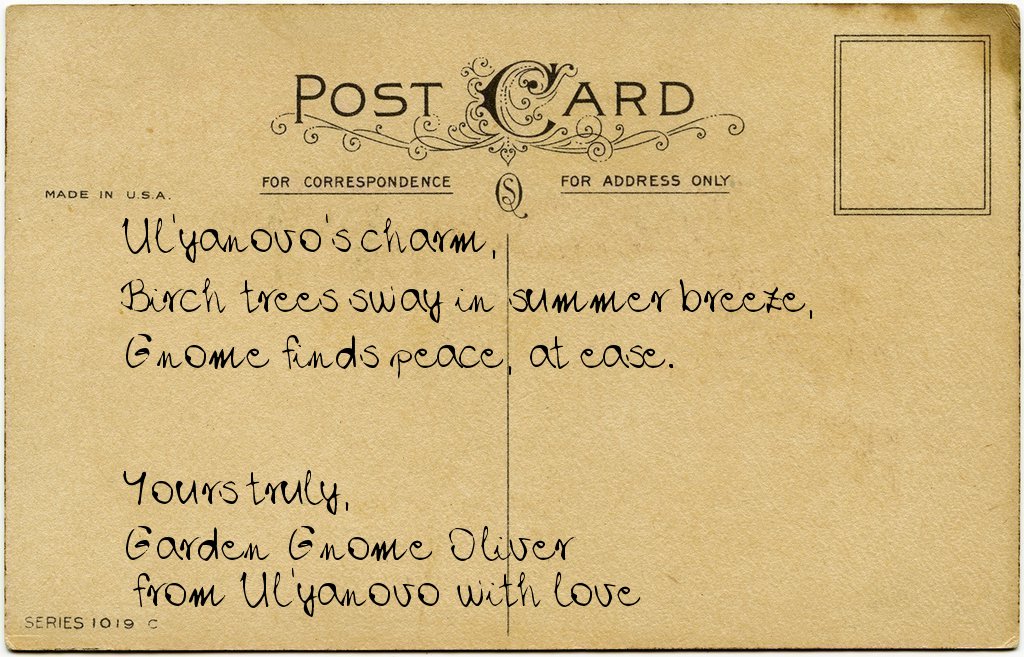 POST CARD
FOR CORRESPONDENCE
FOR ADDRESS ONLY
MADE IN U.S.A.
Ul'yanovo's charm,
Birch trees sway in summer breeze,
Gnome finds peace, at ease.
Yours truly,
Garden Gnome Oliver
from Ul'yanovo with love
SERIES 1019 C